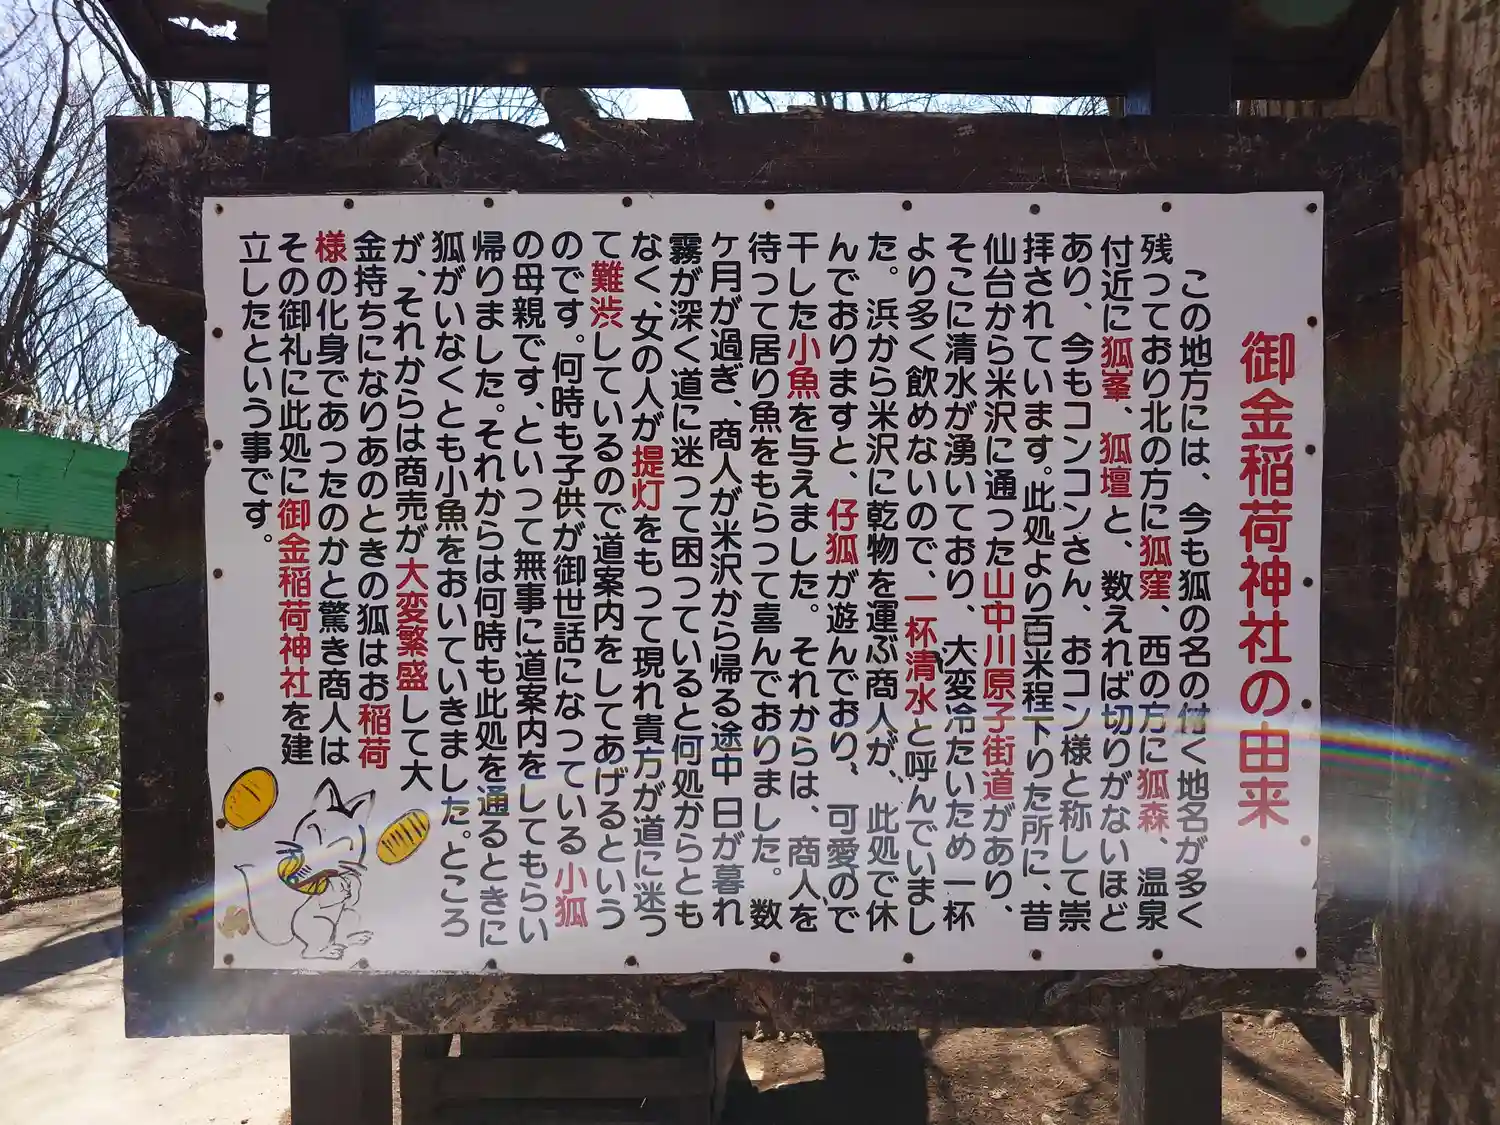 御金稲荷神社の由来
この地方には、今も狐の名の付く地名が多く
残っており北の方に狐窪、西の方に狐森、温泉
付近に狐峯、狐壇と、数えれば切りがないほど
あり、今もコンコンさん、おコン様と称して崇
拝されています。此処より百米程下りた所に、昔
仙台から米沢に通った山中川原子街道があり、
そこに清水が湧いており、大変冷たいため一杯
より多く飲めないので、一杯清水と呼んでいまし
た。浜から米沢に乾物を運ぶ商人が、此処で休
んでおりますと、仔狐が遊んでおり、可愛ので
干した小魚を与えました。それからは、商人を
待って居り魚をもらって喜んでおりました。数
ケ月が過ぎ、商人が米沢から帰る途中日が暮れ
霧が深く道に迷って困っていると何処からとも
なく、女の人が提灯をもって現れ貴方が道に迷っ
て難渋しているので道案内をしてあげるという
のです。何時も子供が御世話になっている小狐
の母親です、といって無事に道案内をしてもらい
帰りました。それからは何時も此処を通るときに
狐がいなくとも小魚をおいていきました。ところ
が、それからは商売が大変繁盛して大
金持ちになりあのときの狐はお稲荷
様の化身であったのかと驚き商人は
その御礼に此処に御金稲荷神社を建
立したという事です。